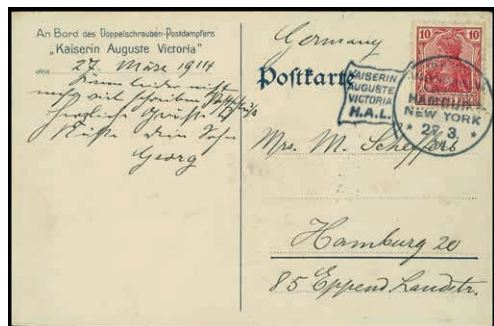 An Bord des Doppelschrauben-Postdampfers
„Kaiserin Auguste Victoria"
den 27. März 1914
Kann leider nicht
mehr viel schreiben Postschluß
herzliche Grüße &
Küsse Dein Sohn
Georg
Germany
Postkarte
10 10
KAISERIN
AUGUSTE
VICTORIA
H.A.L.
HAMBURG
NEW YORK
* 3. *
Mrs. M. Scheffers
Hamburg 20
85 Eppend. Landstr.